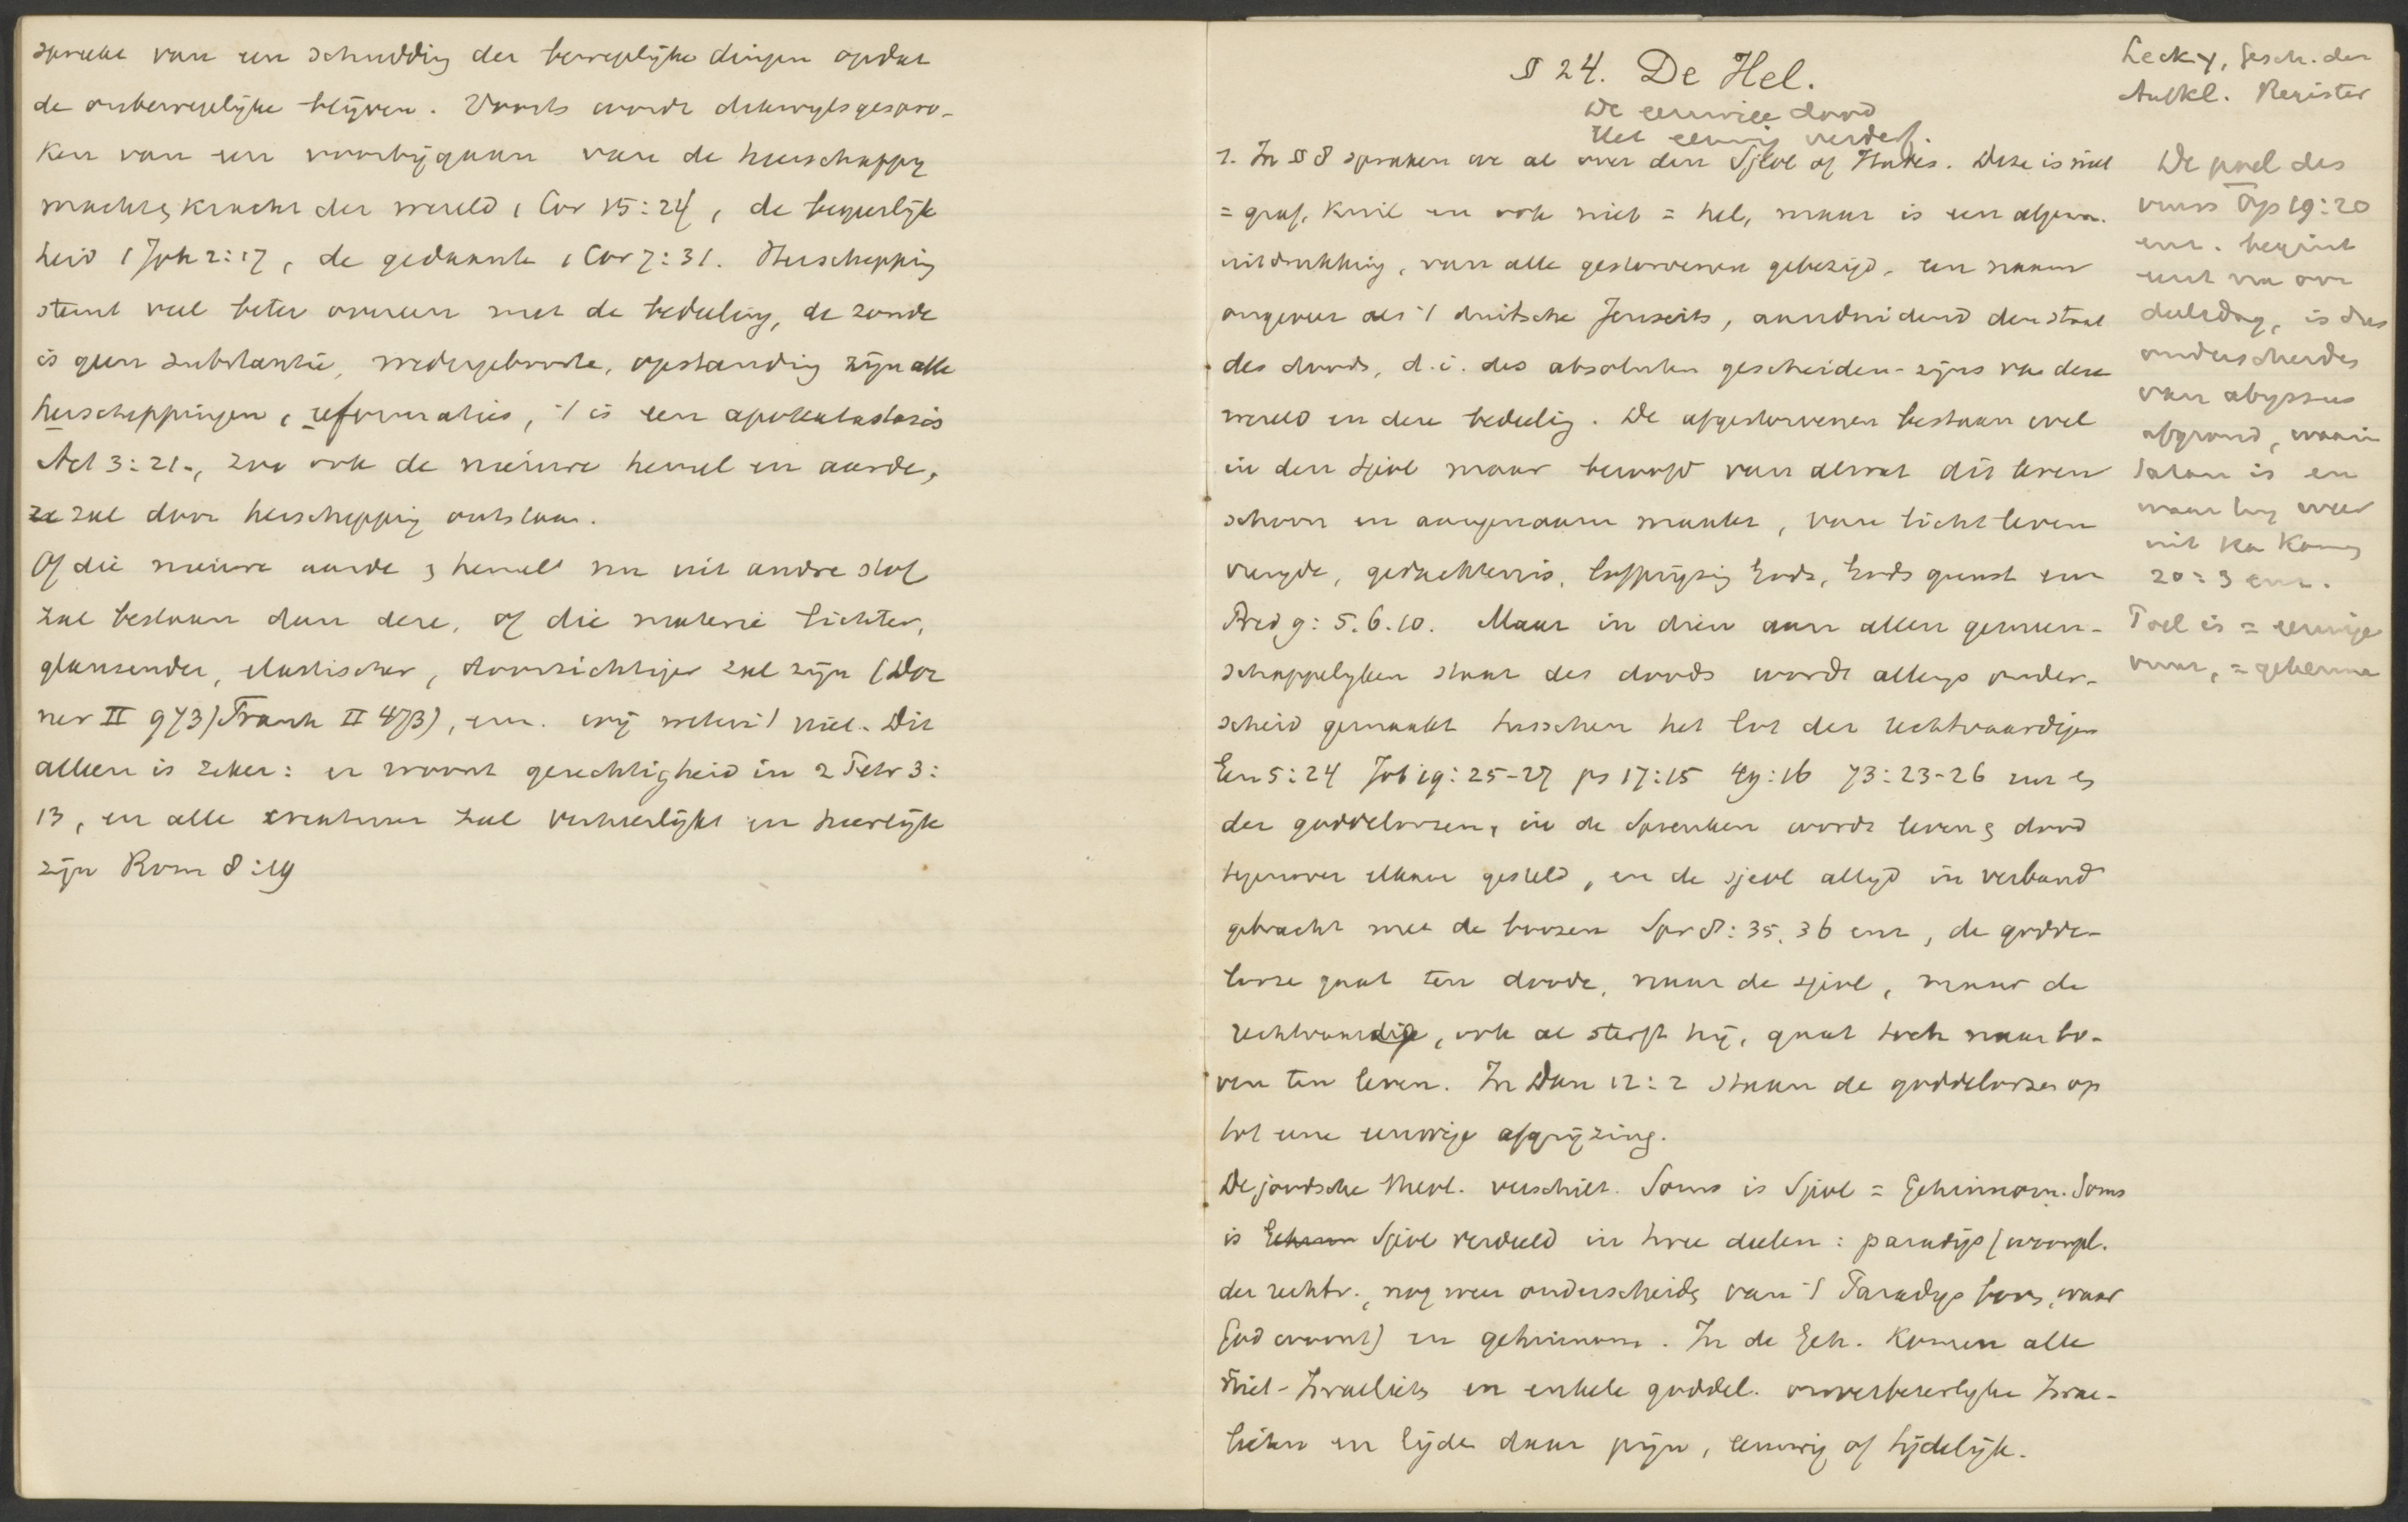 spreekt van een schudding der beweeglijke dingen opdat
de onbeweeglijke blijven. Voorts wordt dikwijls gespro-
ken van een voorbijgaan van de heerschappij
macht & kracht der wereld 1 Cor 15:24, de begeerlijk
heid 1 Joh 2:17, de gedaante 1 Cor 7:31. Herschepping
stemt veel beter overeen met de bedeeling, de zonde
is geen substantie, wedergeboorte, opstanding zijn alle
herscheppingen, reformaties, 't is een apokatastasis
Act 3:21., zoo ook de nieuwe hemel en aarde,
ze zal door herschepping ontstaan.
Of die nieuwe aarde & hemel nu uit andre stof
zal bestaan dan deze, of die materie lichter,
glanzender, elastischer, doorzichtiger zal zijn (Dor
ner II 973) Frank II 473), enz. wij weten 't niet. Dit
alleen is zeker: er woont gerechtigheid in 2 Petr 3:
13, en alle creatuur zal verheerlijkt en heerlijk
zijn Rom 8:19
§ 24. De Hel.
De eeuwige dood
Het eeuwig verderf.
1. In § 8 spraken we al over den Sjeol of Hades. Deze is niet
= graf, kuil en ook niet = hel, maar is een algem.
uitdrukking, van alle gestorvenen gebezigd, een naam
ongeveer als 't duitsche Jenseits, aanduidend den staat
des doods, d.i. des absoluten gescheiden-zijns van deze
wereld en deze bedeeling. De afgestorvenen bestaan wel
in den sjeol maar beroofd van alwat dit leven
schoon en aangenaam maakt, van licht leven
vreugde, gedachtenis, lofprijzing Gods, Gods gunst enz
Pred 9: 5.6.10. Maar in dien aan allen gemeen-
schappelyken staat des doods wordt allengs onder-
scheid gemaakt tusschen het lot der rechtvaardigen
Gen 5:24 Job 19:25-27 ps 17:15 49:16 73:23-26 enz &
der goddeloozen, in de Spreuken wordt leven & dood
tegenover elkaar gesteld, en de sjeol altyd in verband
gebracht met de boozen Spr 8:35.36 enz, de godde-
looze gaat ten doode, naar de sjeol, maar de
rechtvaardige, ook al sterft hij, gaat toch naar bo-
ven ten leven. In Dan 12:2 staan de goddeloozen op
tot eene eeuwige afgrijzing.
De joodsche theol. verschilt. Soms is Sjeol = Gehinnom. Soms
is Sjeol verdeeld in twee deelen: paradijs (woonpl.
der rechtv., nog weer onderscheiden van 't Paradys boven, waar
God woont) en gehinnom. In de Geh. komen alle
niet-Israelieten en enkele goddel. onverbeterlyke Israe-
lieten en lijden daar pijn, eeuwig of tijdelijk.
Lecky, Gesch. der
Aufkl. Register
De poel des
vuurs Op 19:20
enz. begint
eerst na oor
deelsdag, is dus
onderscheiden
van abyssus
afgrond, waarin
Satan is en
waar hij weer
uit kan komen
20:3 enz.
Poel is = eeuwige
vuur, = gehenna